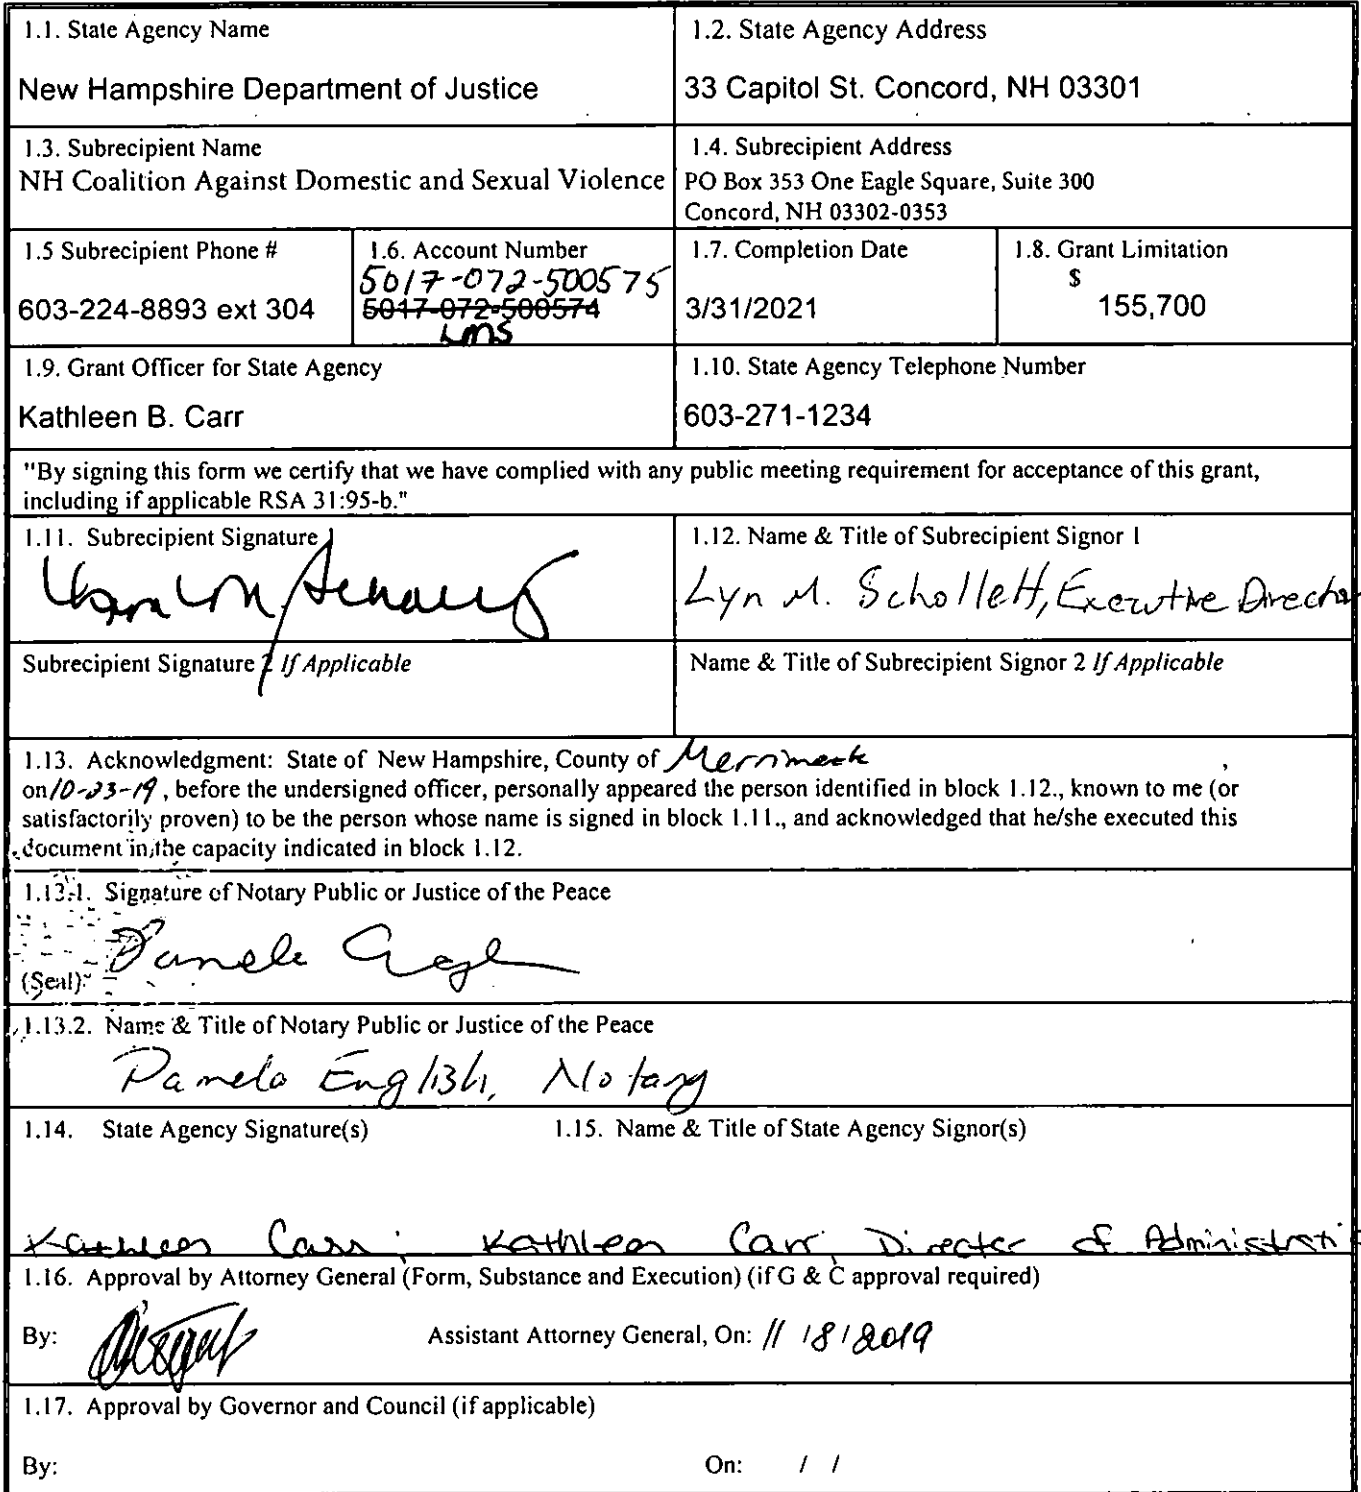 1.1. State Agency Name
New Hampshire Department of Justice
1.2. State Agency Address
33 Capitol St. Concord, NH 03301
1.3. Subrecipient Name
NH Coalition Against Domestic and Sexual Violence
1.4. Subrecipient Address
PO Box 353 One Eagle Square, Suite 300
Concord, NH 03302-0353
1.5 Subrecipient Phone #
603-224-8893 ext 304
1.6. Account Number
5017-072-500575
5017-072-500574
LMS
1.7. Completion Date
3/31/2021
1.8. Grant Limitation
$
155,700
1.9. Grant Officer for State Agency
Kathleen B. Carr
1.10. State Agency Telephone Number
603-271-1234
"By signing this form we certify that we have complied with any public meeting requirement for acceptance of this grant,
including if applicable RSA 31:95-b."
1.11. Subrecipient Signature 1
1.12. Name & Title of Subrecipient Signor 1
Lyn M. Schollett, Executive Director
Subrecipient Signature 2 If Applicable
Name & Title of Subrecipient Signor 2 If Applicable
1.13. Acknowledgment: State of New Hampshire, County of Merrimack ,
on 10-23-19, before the undersigned officer, personally appeared the person identified in block 1.12., known to me (or
satisfactorily proven) to be the person whose name is signed in block 1.11., and acknowledged that he/she executed this
document in the capacity indicated in block 1.12.
1.13.1. Signature of Notary Public or Justice of the Peace
Pamela
(Seal)
1.13.2. Name & Title of Notary Public or Justice of the Peace
Pamela English, Notary
1.14. State Agency Signature(s)
1.15. Name & Title of State Agency Signor(s)
Kathleen Carr, Kathleen Carr, Director of Administrati
1.16. Approval by Attorney General (Form, Substance and Execution) (if G & C approval required)
By:
Assistant Attorney General, On: 11 / 8 / 2019
1.17. Approval by Governor and Council (if applicable)
By:
On: / /